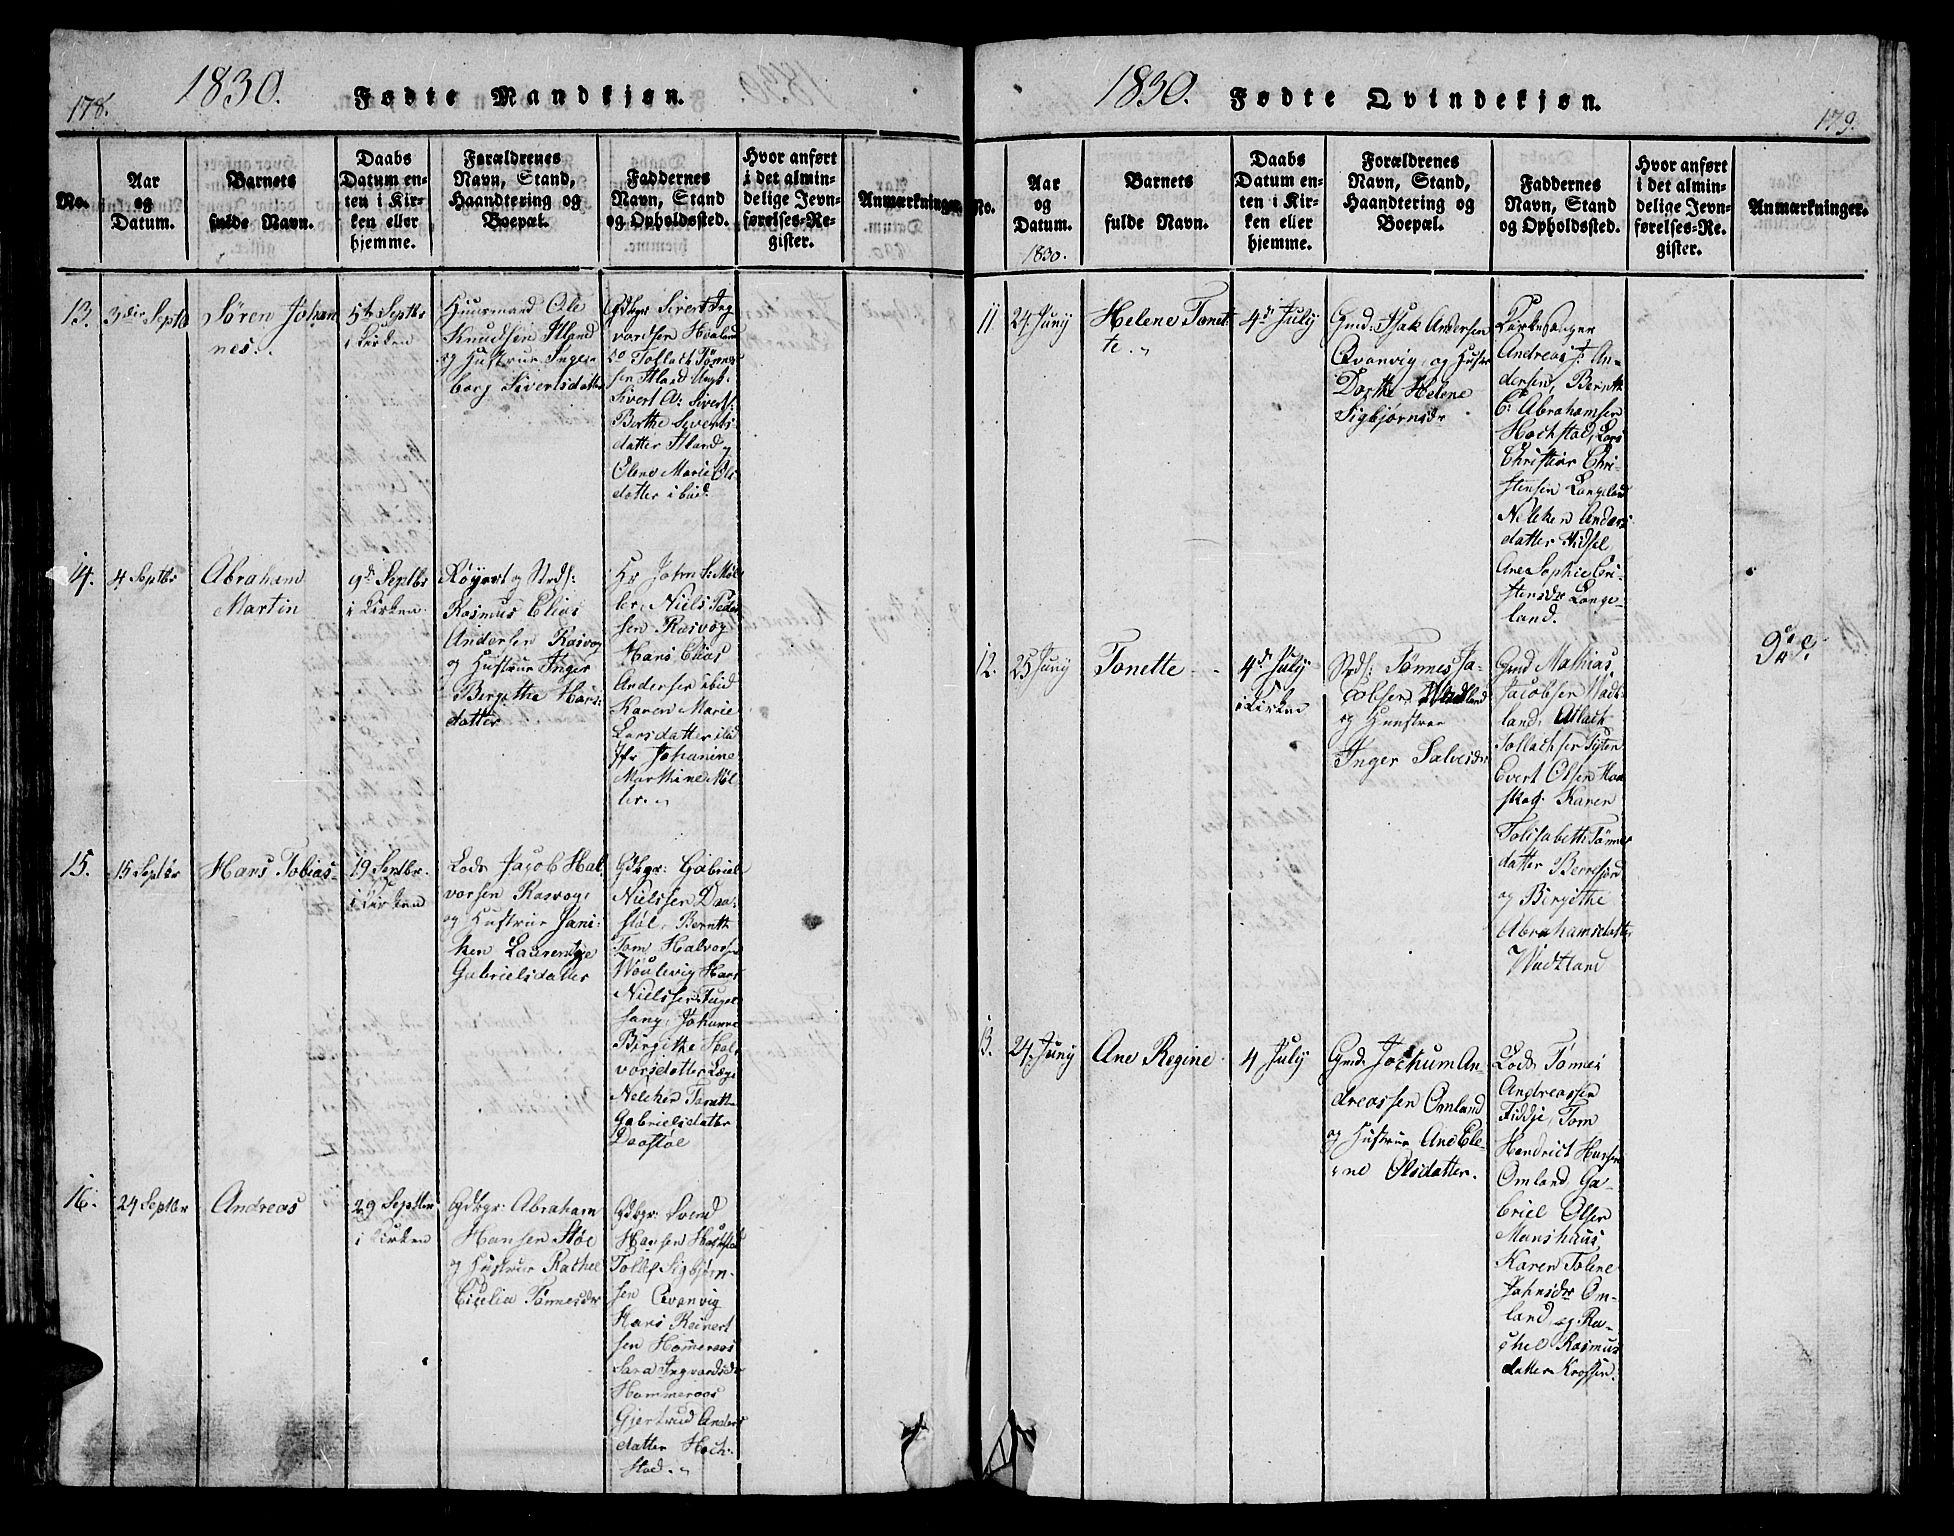 178.
1830.
Fødte Mandkjøn.
No.
Aar
og
Datum.
Barnets
fulde Navn.
Daabs
Datum en-
ten i Kir-
ken eller
hjemme.
Forældrenes
Navn, Stand,
Haandtering og
Boepæl.
Faddernes
Navn, Stand
og Opholdssted.
Hvor anført
i det almin-
delige Jevn-
førelses-Re-
gister.
Anmærkninger.
13.
Søren Johan
nes.
i Kirken
Huusmand Ole
Knudsen
og Hustrue Inge-
borg Sivertsdatter
Gdbgr Sivert Ing
vardsen
Tollach Tønnes
sen
Sivert A: Sivert:
Berthe Siverts
datter
Olene Marie Ols
datter ibid.
14.
4 Septbr
Abraham
Martin
9d Septbr
i Kirken
Rasmus Elias
Andersen Rasvog
og Hustrue Inger
Bergithe Hans
datter
Hr John S: Møl
ler, Niels Peder
sen Rasvog
Hans Elias
Andersen ibid
Karen Marie
Larsdatter ibid
Jfr Johanine
Marthine Møl
ler.
15.
15 Septbr
Hans Tobias
19 Septbr.
i Kirken
Lods Jacob Hal
vorsen Rasvog
og Hustrue Jani-
ken Laurentze
Gabrielsdatter
Gdbgr: Gabriel
Nielssen Daa-
støl, Bernth
Tom Halvorsen
Hans
Nielssen Fugel
sang, Johanne
Birgithe Hal
vorsdatter
Nelcken Tonette
Gabrielsdatter
Daastøl
16.
24 Septbr
Andreas
29 Septbr
i Kirken
Gdbgr: Abraham
Hansen Støe
og Hustrue Rachel
Cicelia Tønnesdr
Gdbgr: Svend
Hansen Hochstad
Tollef Sigbjørn-
sen Qvanvig
Hans Reinert
sen Hameraas
Sara Ingvardsdr
Hammeraas
Gjertrud Anders
datter Hoch-
stad.
1830.
Fødte Qvindekjøn.
179.
No.
Aar
og
Datum.
1830.
Barnets
fulde Navn.
Daabs
Datum en-
ten i Kir-
ken eller
hjemme.
Forældrenes
Navn, Stand,
Haandtering og
Boepæl.
Faddernes
Navn, Stand
og Opholdssted.
Hvor anført
i det almin-
delige Jevn-
førelses-Re-
gister.
Anmærkninger.
11
24 Juny
Helene Tonet
te.
4d July
Gmd: Isak Andersen
Qvanvig, og Hustr
Dorthe Helene
Sigbjørnsdr
Kirkesanger
Andreas J: An-
dersen, Bernth
C: Abrahamsen
Hochstad, Lars
Christian Chri-
stensen Langeland
Nelcken Anders
datter Hidsel
Ane Sophie Cri-
stensdr Lange-
land.
12.
25 Juny
Tonette
4d July
i Kirken
Tønnes Ja-
cobsen Wadland
og Huustrue
Inger Salvesdr
Gmd Mathias
Jacobsen Wadt-
land, Atlach
Tollachsen
Evert Olsen
Karen
Tolisabeth Tønnes
datter
og Bergithe
Abrahamsdatter
Wadtland
13.
24 Juny
Ane Regine
4 July
Gmd: Jochum An-
dreassen Omland
og Hustrue Ane Ele-
ne Olsdatter.
Lods Tønnes
Andreassen
Fidje, Tom
Hendrick Hansen
Omland Ga-
briel Olsen
Monshaus
Karen Tolene
Johnsdr Om-
land og Ra-
chel Rasmus
datter Krossen.